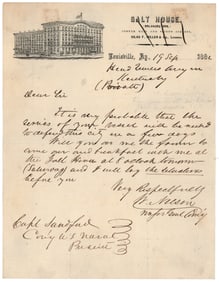 GALT HOUSE,
Louisville, Ky., 19 Sep 186
Head Quarters Army in
Kentucky
(Private)
Dear Sir
It is very probable that the
services of your vessel will be used
to defend this city in a few days.
Will you do me the favor to
come over and breakfast with me at
the Galt House at 8 o'clock tomorrow
(Saturday) and I will lay the
before you
Very Respectfully
W. Nelson
Major Genl Comdg
Capt Sandford
Present